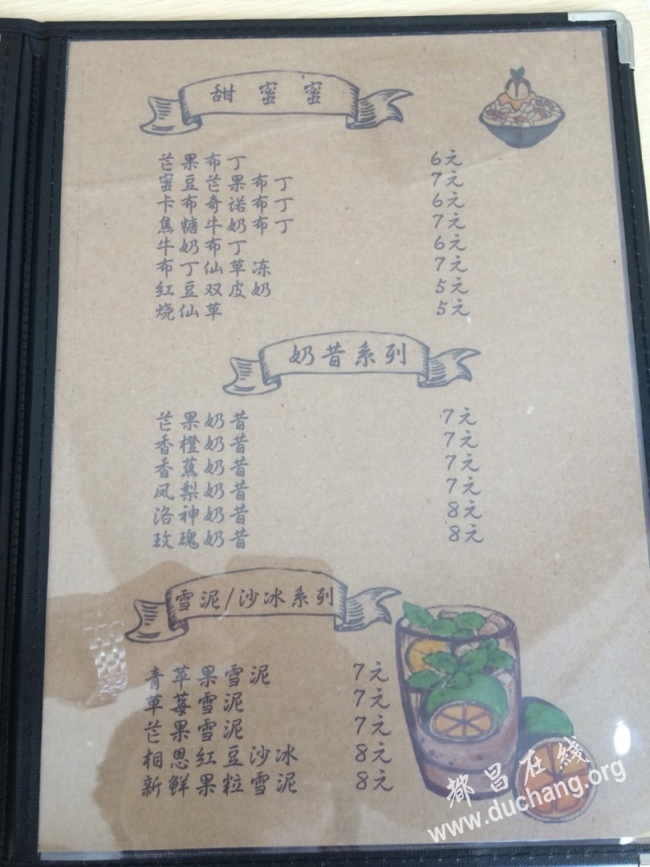 甜蜜蜜
芒果布丁 6元
蜜豆芒果布丁 7元
卡布奇诺布丁 6元
焦糖牛奶布丁 7元
牛奶布丁 6元
布丁仙草冻 7元
红豆双皮奶 5元
烧仙草 5元
奶昔系列
芒果奶昔 7元
香橙奶昔 7元
香蕉奶昔 7元
凤梨奶昔 7元
洛神奶昔 8元
玫瑰奶昔 8元
雪泥/沙冰系列
青苹果雪泥 7元
草莓雪泥 7元
芒果雪泥 7元
相思红豆沙冰 8元
新鲜果粒雪泥 8元
都昌在线
www.duchang.org